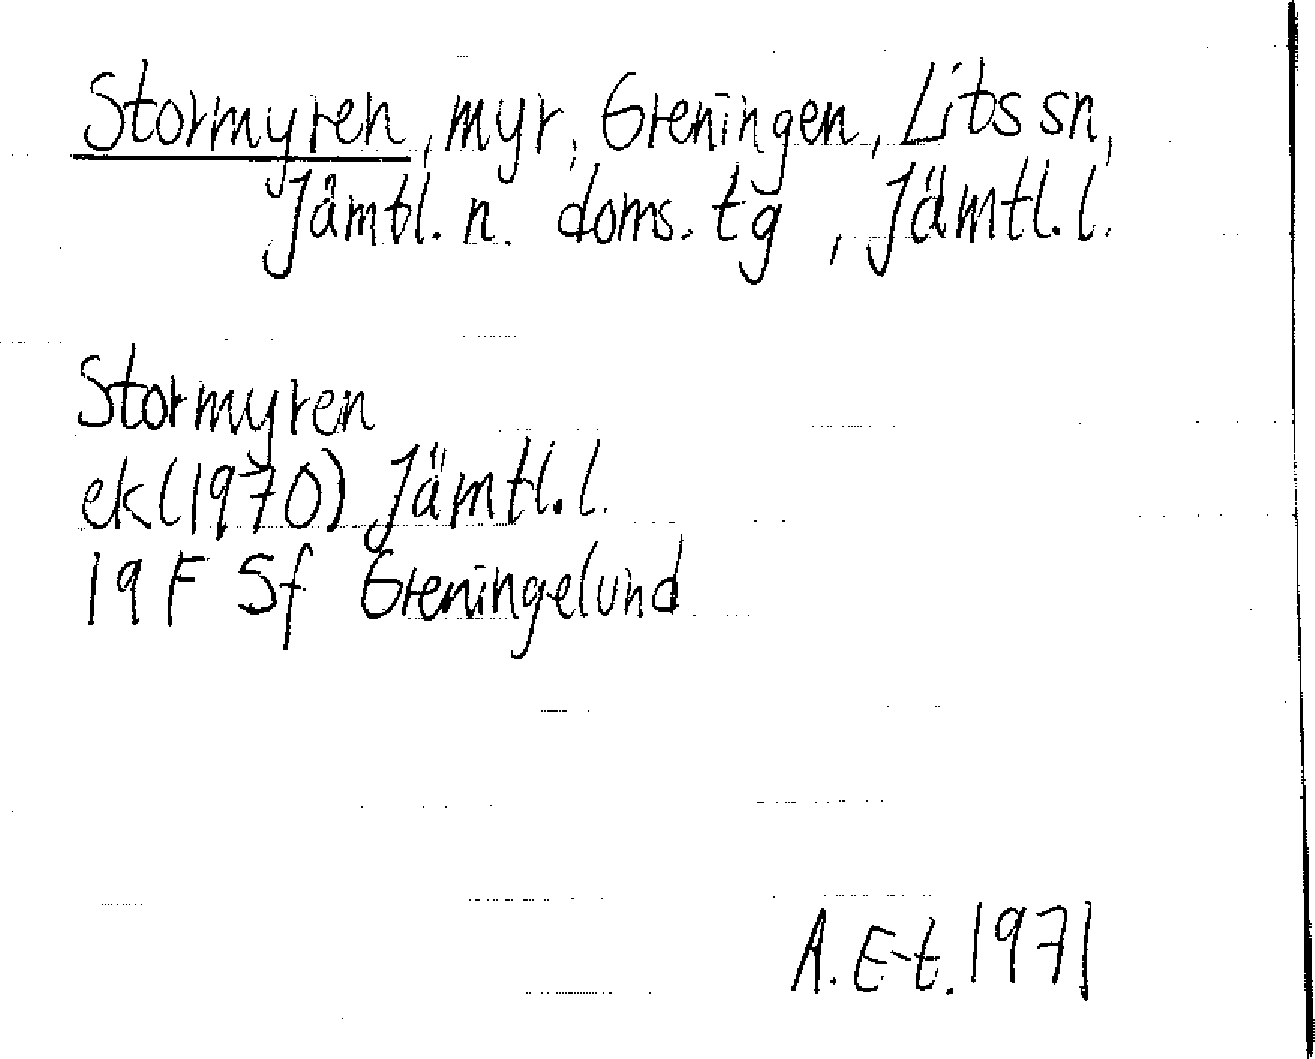 Stormyren, myr, Greningen, Lits sn,
Jämtl. n. doms. tg, Jämtl. l.
Stormyren
ek (1970) Jämtl. l.
19 F Sf Greningelund
A. E-t. 1971